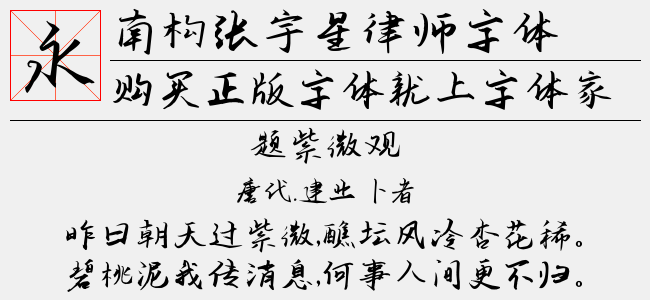 永
南构张宇星律师字体
购买正版字体就上字体家
题紫微观
唐代.建业卜者
昨日朝天过紫微,醮坛风冷杏花稀。
碧桃泥我传消息,何事人间更不归。